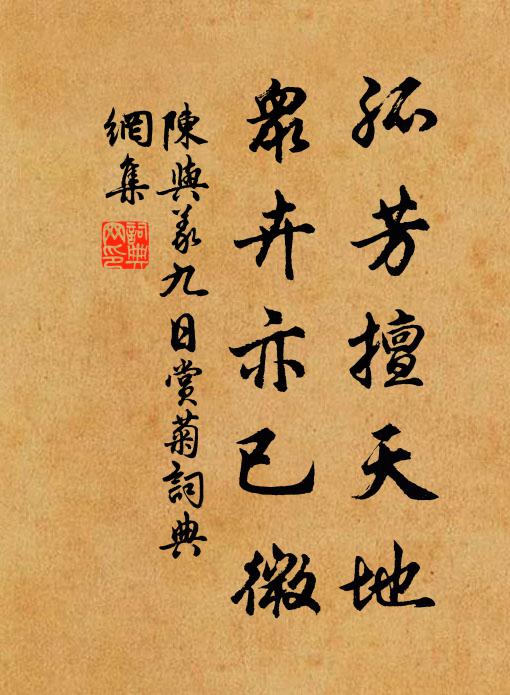 孤芳擅天地
眾卉亦已微
陳與義九日賞菊詞典
網集
詞典
网印